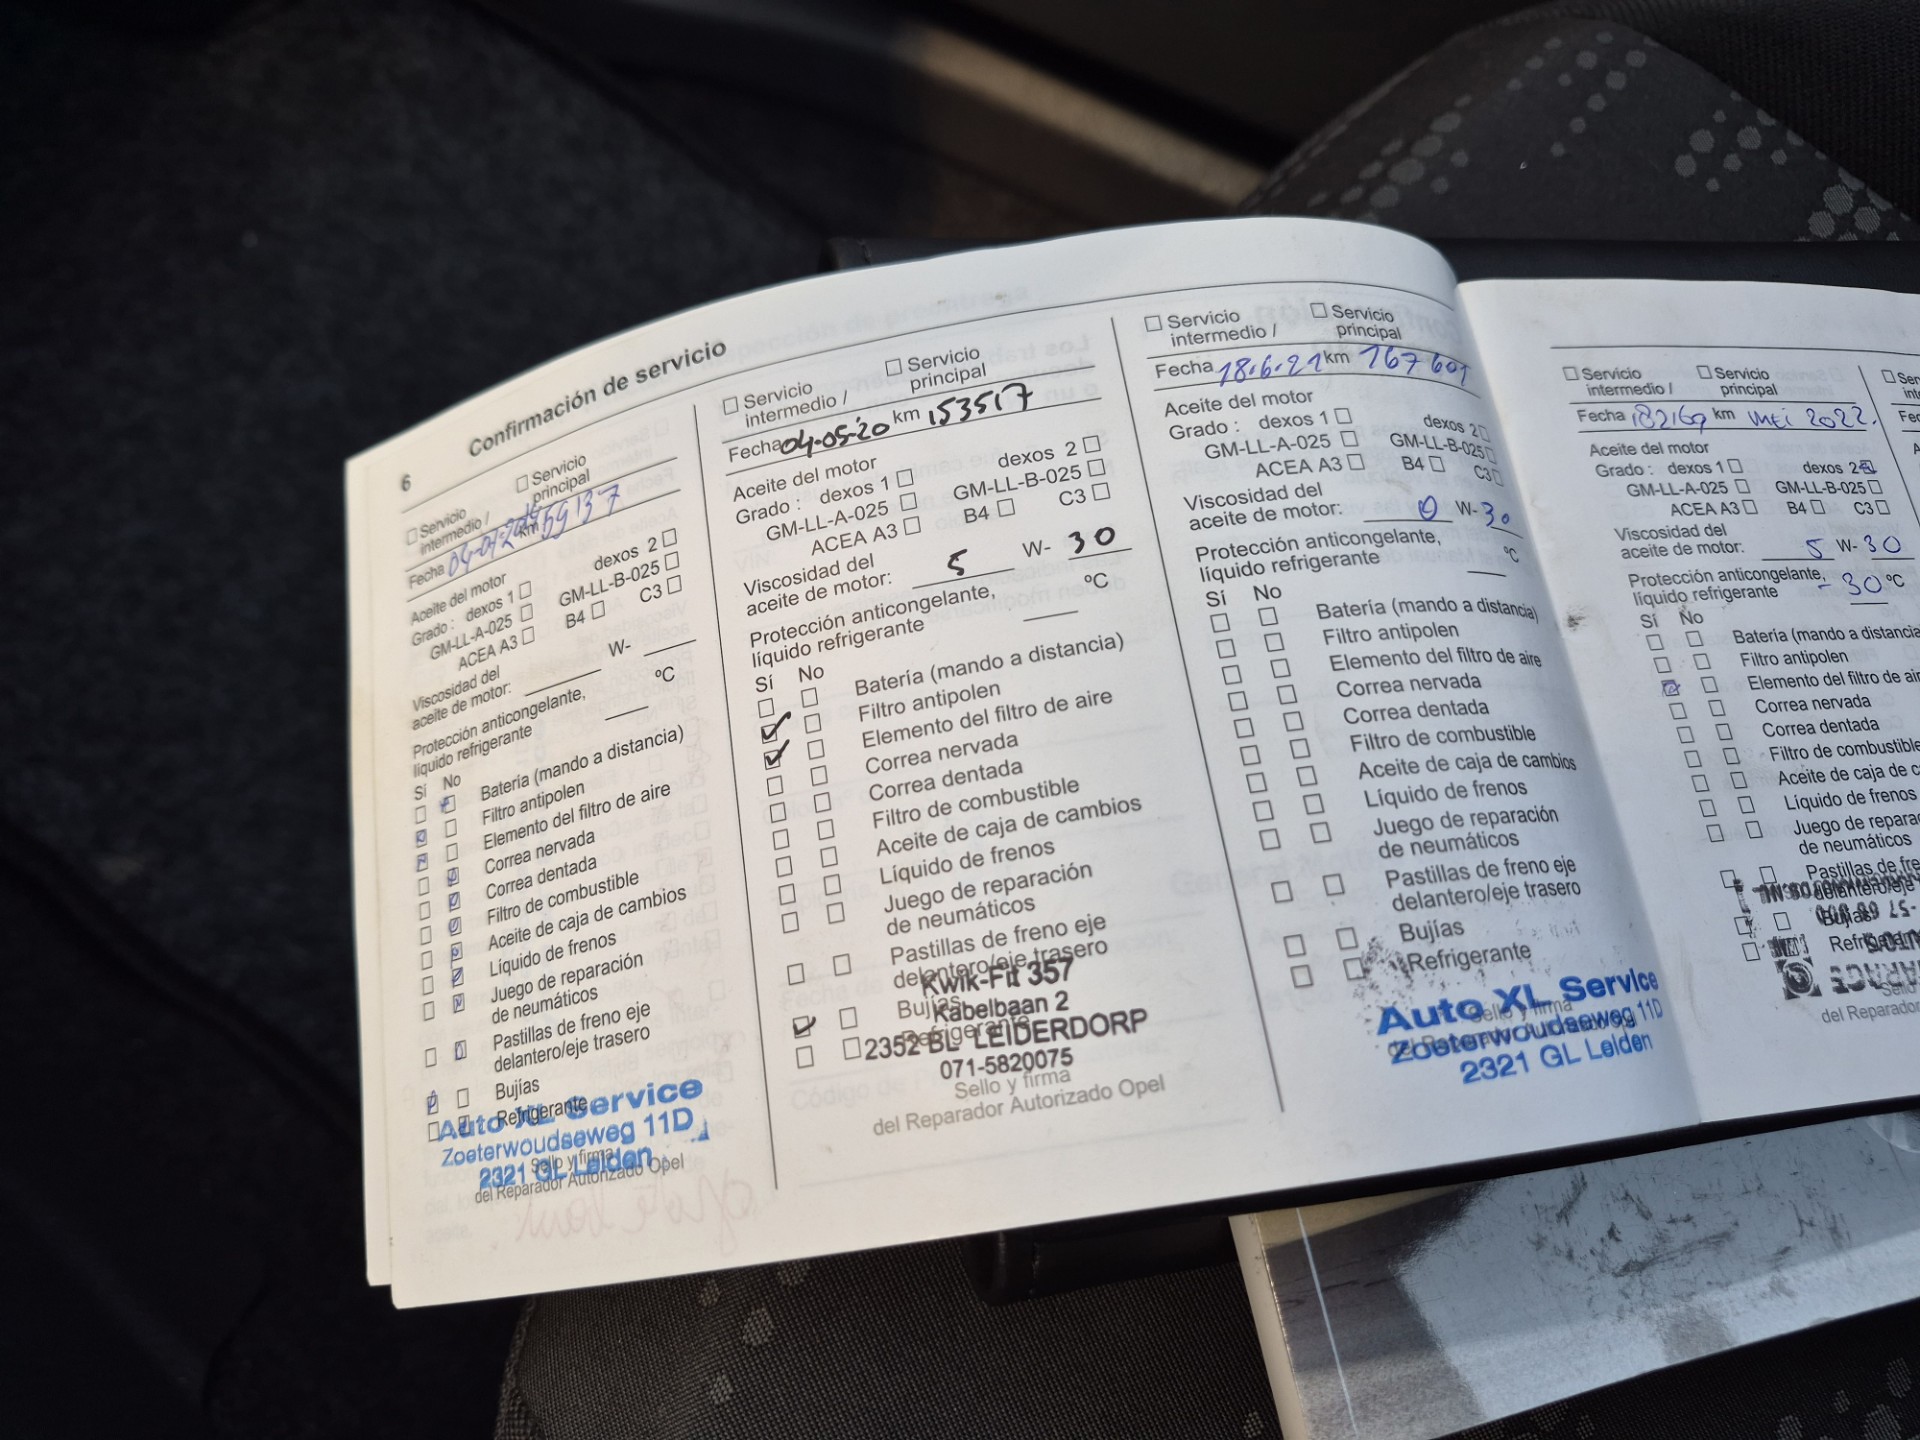 6
Confirmación de servicio
Servicio intermedio /
Servicio principal
Fecha
km
Aceite del motor
Grado : dexos 1 dexos 2
GM-LL-A-025 GM-LL-B-025
ACEA A3 B4 C3
Viscosidad del
aceite de motor: W-
Protección anticongelante,
líquido refrigerante °C
Sí No
Batería (mando a distancia)
Filtro antipolen
Elemento del filtro de aire
Correa nervada
Correa dentada
Filtro de combustible
Aceite de caja de cambios
Líquido de frenos
Juego de reparación
de neumáticos
Pastillas de freno eje
delantero/eje trasero
Bujías
Refrigerante
Auto XL Service
Zoeterwoudseweg 11D
2321 GL Leiden
Sello y firma
del Reparador Autorizado Opel
Servicio intermedio /
Servicio principal
Fecha 04-05-20 km 153517
Aceite del motor
Grado : dexos 1 dexos 2
GM-LL-A-025 GM-LL-B-025
ACEA A3 B4 C3
Viscosidad del
aceite de motor: 5 W- 30
Protección anticongelante,
líquido refrigerante °C
Sí No
Batería (mando a distancia)
Filtro antipolen
Elemento del filtro de aire
Correa nervada
Correa dentada
Filtro de combustible
Aceite de caja de cambios
Líquido de frenos
Juego de reparación
de neumáticos
Pastillas de freno eje
delantero/eje trasero
Bujías
Refrigerante
Kwik-Fit 357
Kabelbaan 2
2352 BL LEIDERDORP
071-5820075
Sello y firma
del Reparador Autorizado Opel
Servicio intermedio /
Servicio principal
Fecha 18.6.21 km 167601
Aceite del motor
Grado : dexos 1 dexos 2
GM-LL-A-025 GM-LL-B-025
ACEA A3 B4 C3
Viscosidad del
aceite de motor: 0 W- 30
Protección anticongelante,
líquido refrigerante °C
Sí No
Batería (mando a distancia)
Filtro antipolen
Elemento del filtro de aire
Correa nervada
Correa dentada
Filtro de combustible
Aceite de caja de cambios
Líquido de frenos
Juego de reparación
de neumáticos
Pastillas de freno eje
delantero/eje trasero
Bujías
Refrigerante
Auto XL Service
Zoeterwoudseweg 11D
2321 GL Leiden
Sello y firma
Servicio intermedio /
Servicio principal
Fecha 182169 km Mei 2022.
Aceite del motor
Grado : dexos 1 dexos 2
GM-LL-A-025 GM-LL-B-025
ACEA A3 B4 C3
Viscosidad del
aceite de motor: 5 W- 30
Protección anticongelante,
líquido refrigerante - 30 °C
Sí No
Batería (mando a distancia
Filtro antipolen
Elemento del filtro de air
Correa nervada
Correa dentada
Filtro de combustible
Aceite de caja de c
Líquido de frenos
Juego de repara
de neumáticos
Pastillas de fre
delantero/eje
Bujías
del Reparador